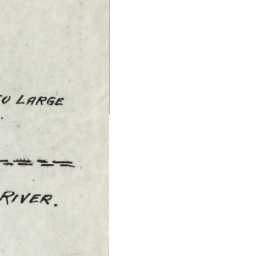 LARGE
RIVER.